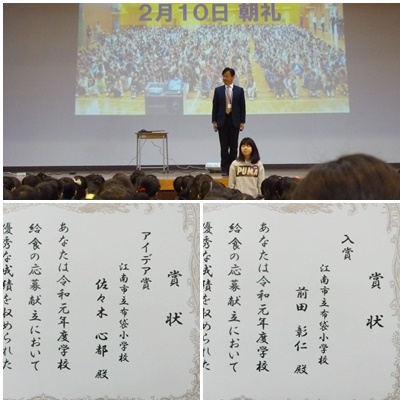 2月10日 朝礼
PUMA
賞状
アイデア賞
江南市立布袋小学校
佐々木 心都 殿
あなたは令和元年度学校
給食の応募献立において
優秀な成績を収められた
賞状
入賞
江南市立布袋小学校
前田 彰仁 殿
あなたは令和元年度学校
給食の応募献立において
優秀な成績を収められた